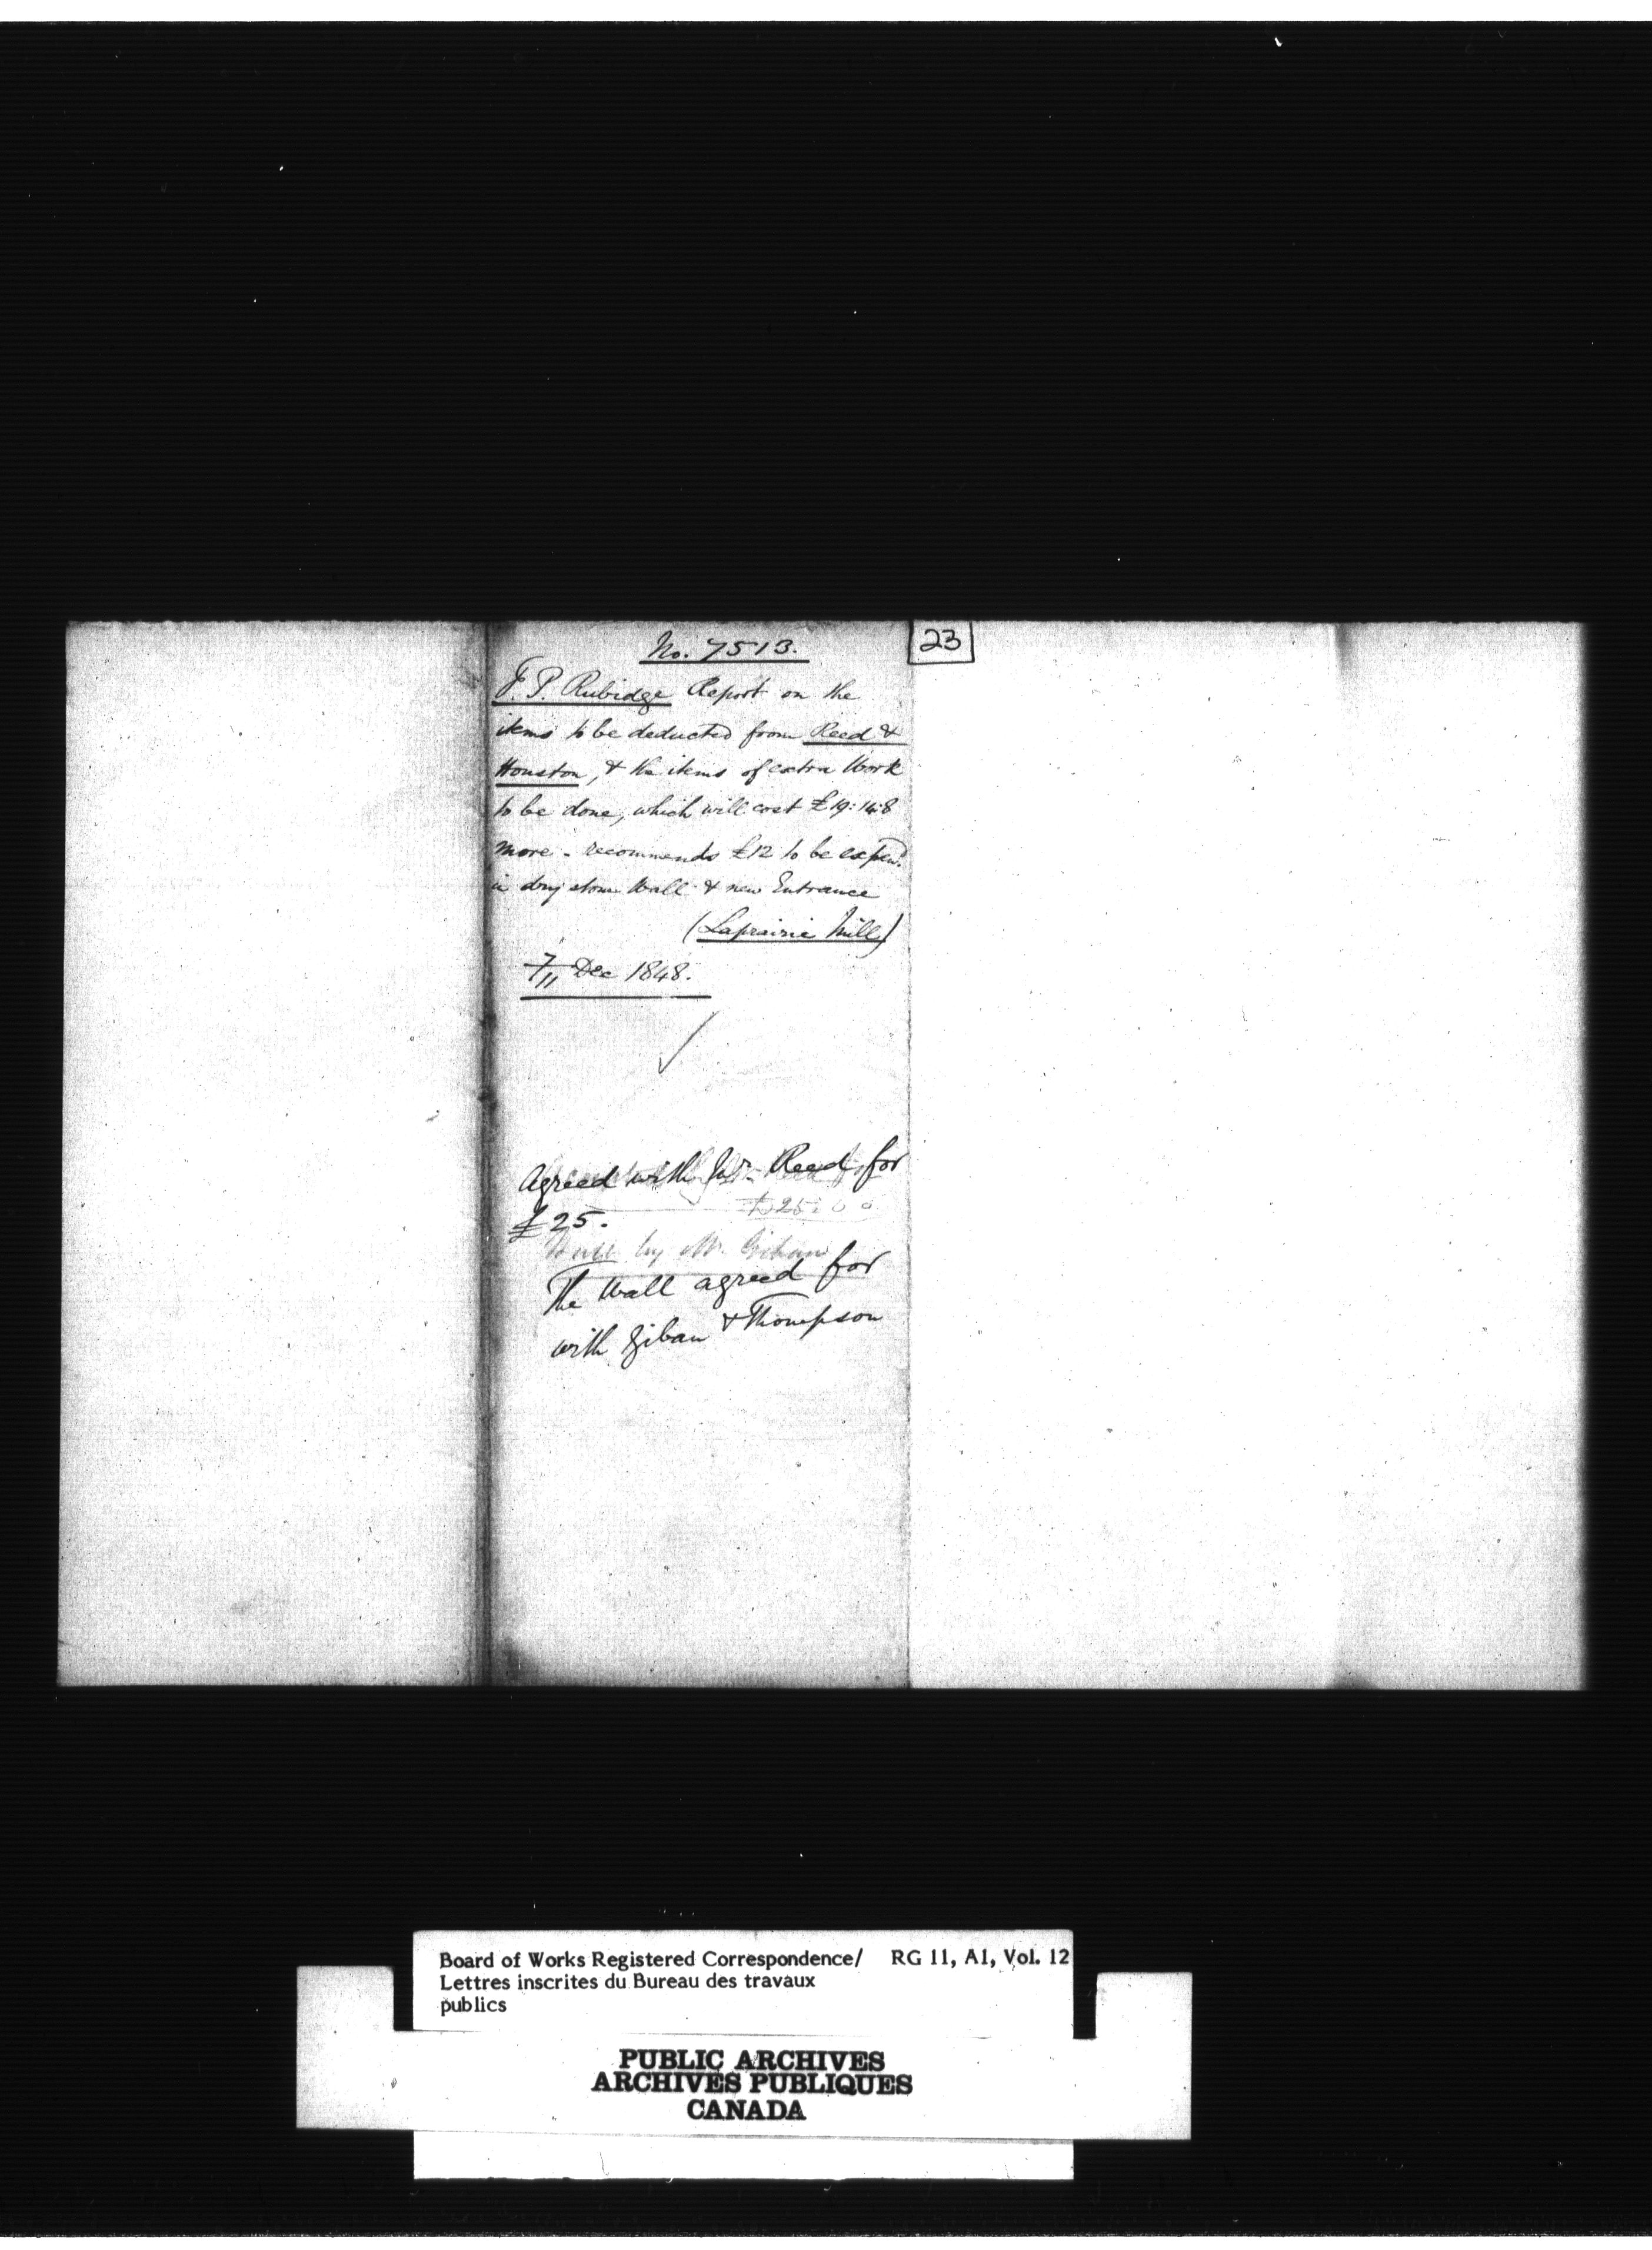 No. 7513.
23
F. P. Rubidge Report on the
items to be deducted from Reed &
Houston, & the items of extra Work
to be done, which will cost £19:14:8
more - recommends £12 to be expend.
in dry stone Wall & new Entrance
(Laprairie Mill)
7/11 Dec 1848.
Agreed with Mr. Reed for
£25:0 0
£25.
by Mr. Giban
The Wall agreed for
with Giban & Thompson
Board of Works Registered Correspondence/ RG 11, A1, Vol. 12
Lettres inscrites du Bureau des travaux
publics
PUBLIC ARCHIVES
ARCHIVES PUBLIQUES
CANADA